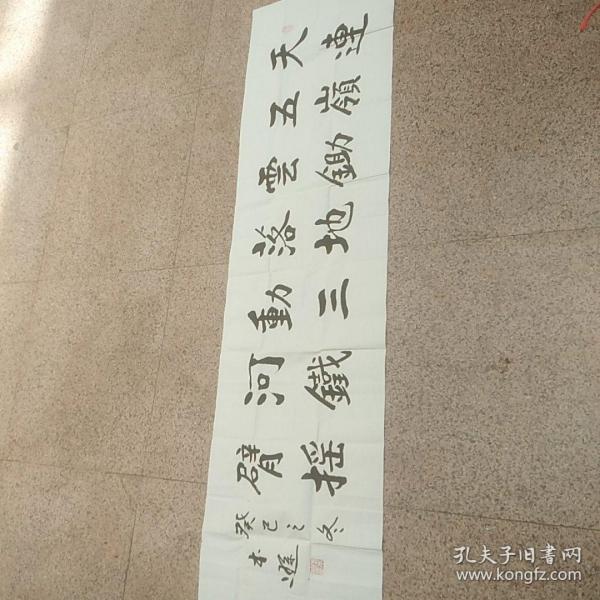 天連
五嶺
雲鋤
落地
動三
河鐵
臂摇
癸巳之冬
孔夫子旧书网
www.kongfz.com